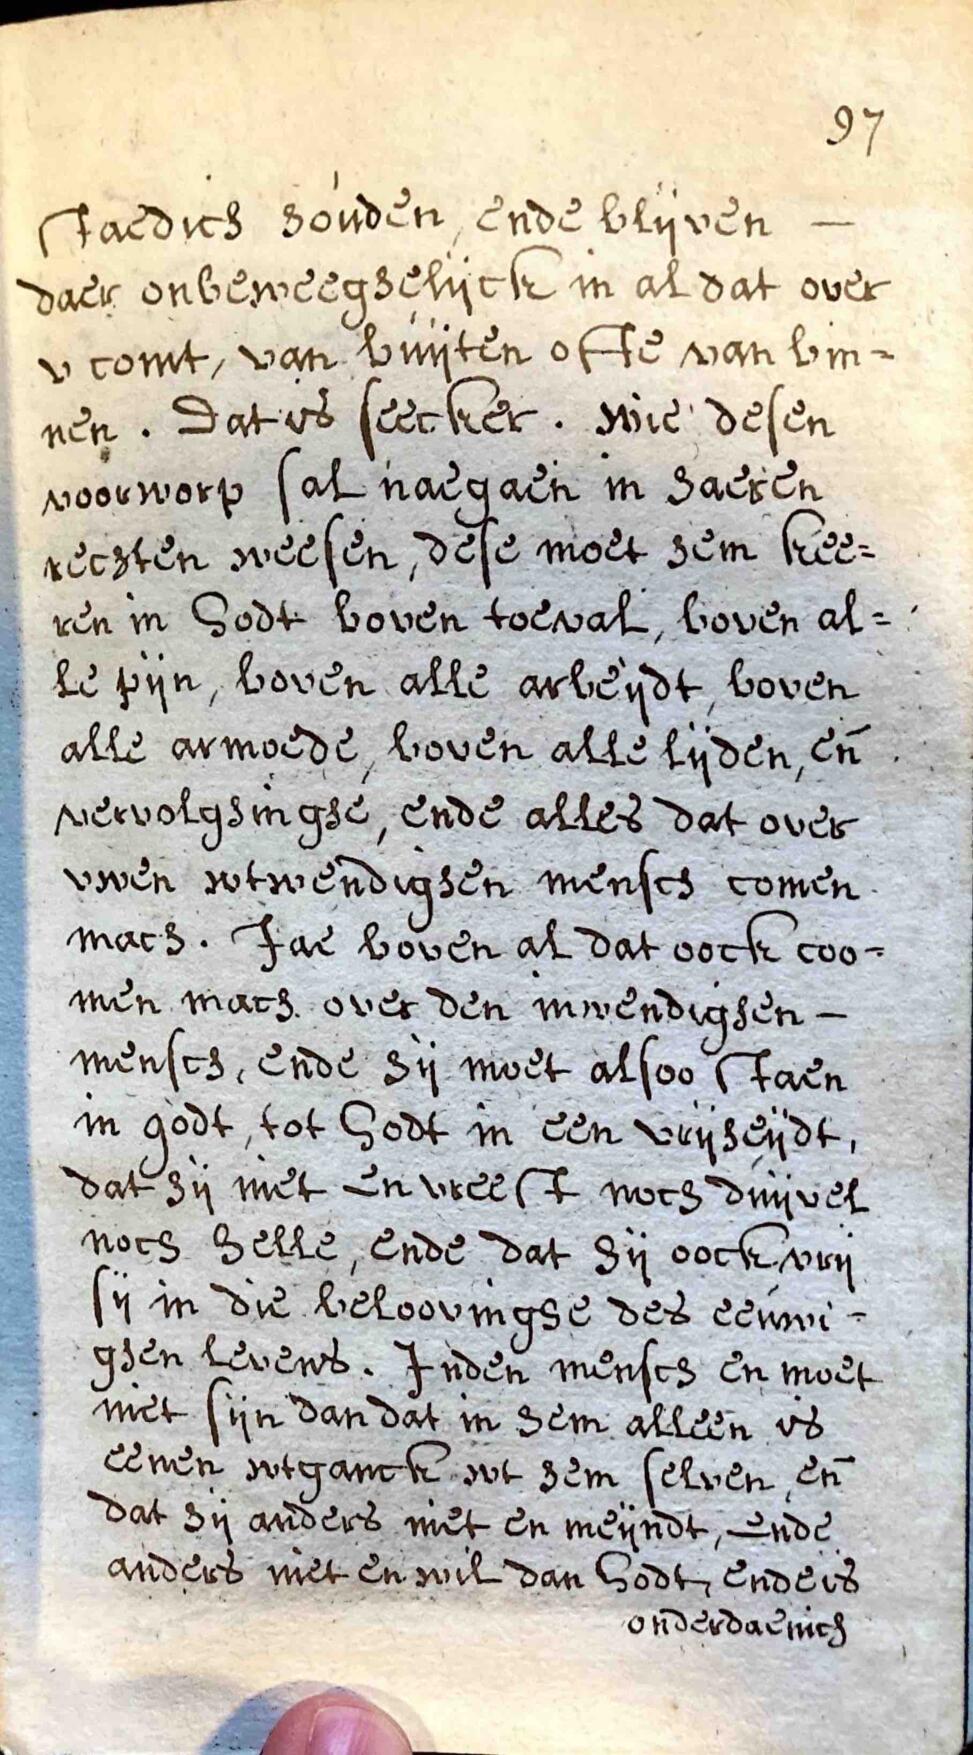 97
staedich houden, ende blijven —
daer onbeweeghelijck in al dat over
v comt, van buijten ofte van bin=
nen. Dat is seecker. wie desen
voorworp sal naegaen in haeren
rechten weesen, dese moet hem kee=
ren in Godt boven toeval, boven al=
le pijn, boven alle arbeijdt, boven
alle armoede, boven alle lijden, en̄
vervolghinghe, ende alles dat over
vwen wtwendighen mensch comen
mach. Jae boven al dat oock coo=
men mach over den inwendighen —
mensch, ende hij moet alsoo staen
in godt, tot Godt in een vrijheijdt,
dat hij niet en vreest noch duijvel
noch helle, ende dat hij oock vrij
sij in die beloovinghe des eeuwi=
ghen levens. Inden mensch en moet
niet sijn dan dat in hem alleen is
eenen wtganck wt hem selven, en̄
dat hij anders niet en meijndt, ende
anders niet en wil dan Godt, ende is
onderdaenich